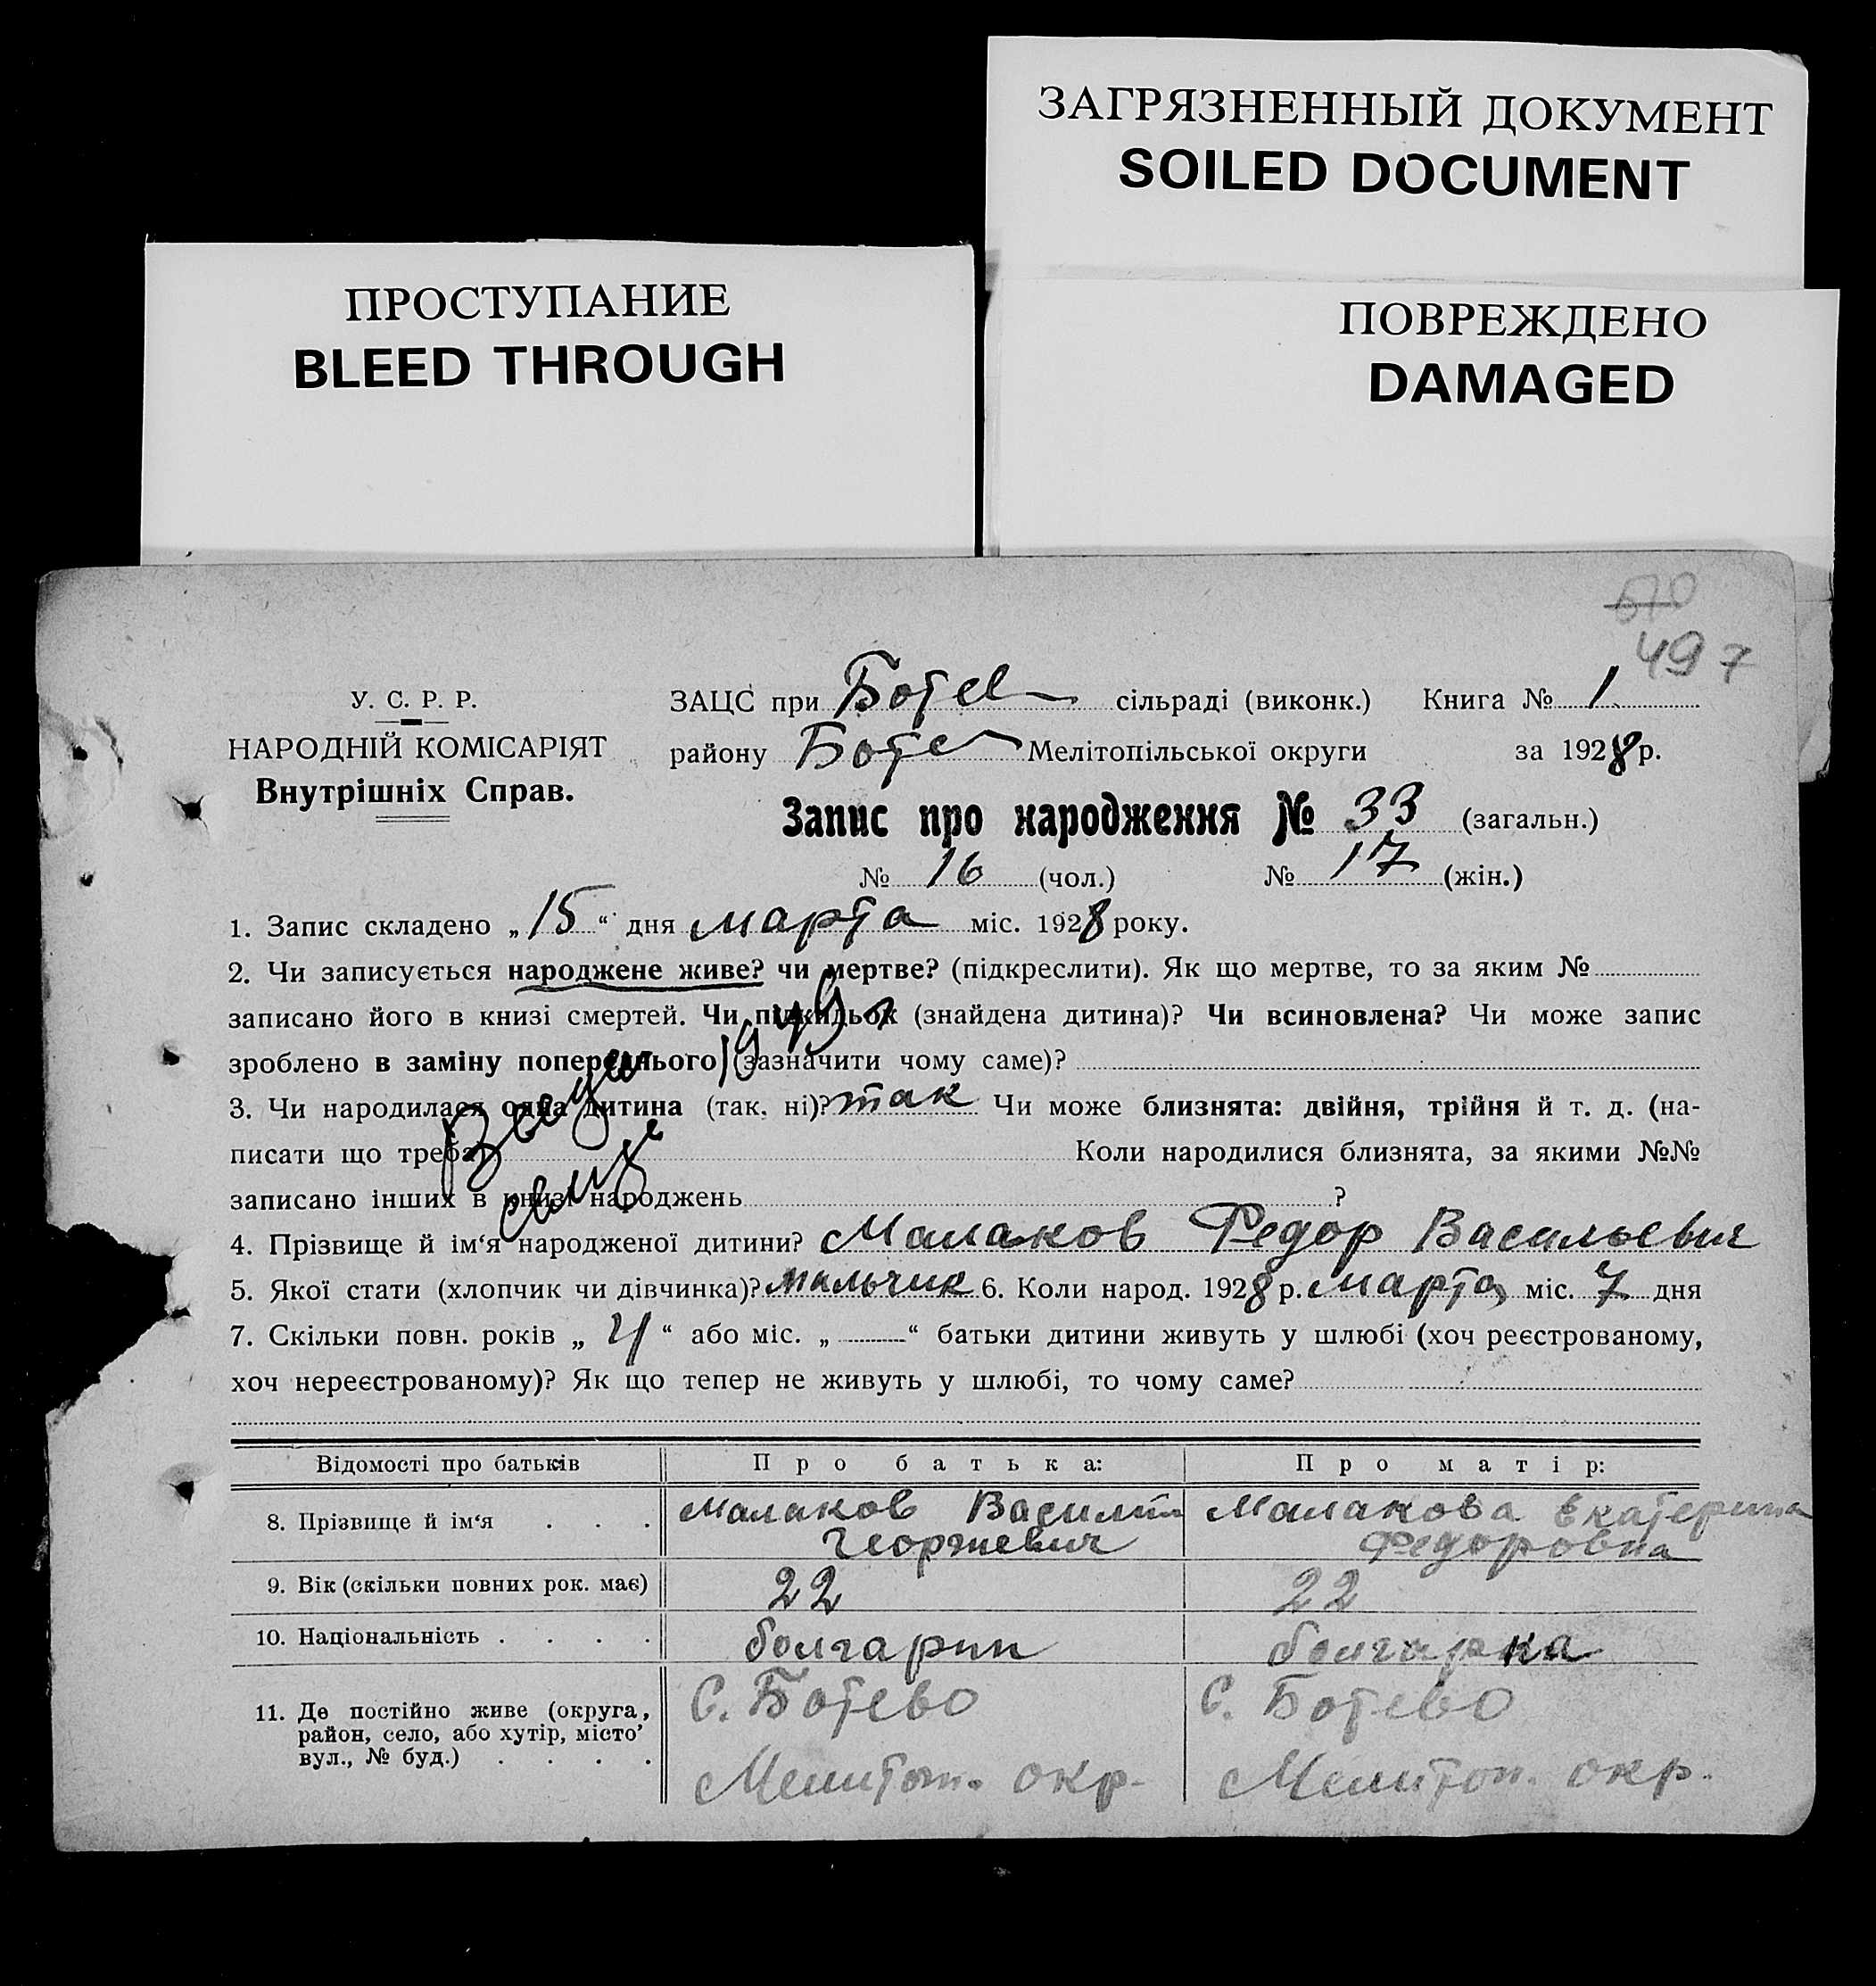 ЗАГРЯЗНЕННЫЙ ДОКУМЕНТ
SOILED DOCUMENT
ПРОСТУПАНИЕ
BLEED THROUGH
ПОВРЕЖДЕНО
DAMAGED
570
497
У. С. Р. Р.
НАРОДНІЙ КОМІСАРІЯТ
Внутрішніх Справ.
ЗАЦС при Ботев сільраді (виконк.) Книга № 1
району Ботев Мелітопільської округи за 1928 р.
Запис про народження № 33 (загальн.)
№ 16 (чол.) № 17 (жін.)
1. Запис складено „15“ дня марта міс. 1928 року.
2. Чи записується народжене живе? чи мертве? (підкреслити). Як що мертве, то за яким №
записано його в книзі смертей. Чи підкидьок (знайдена дитина)? Чи всиновлена? Чи може запис
зроблено в заміну попереднього (зазначити чому саме)?
3. Чи народилася одна дитина (так, ні)? так Чи може близнята: двійня, трійня й т. д. (на-
писати що треба) Коли народилися близнята, за якими №№
записано інших в книзі народжень ?
4. Прізвище й ім‘я народженої дитини? Малаков Федор Васильевич
5. Якої стати (хлопчик чи дівчинка)? мальчик 6. Коли народ. 1928 р. марта міс. 7 дня
7. Скільки повн. років „ 4 “ або міс. „ — “ батьки дитини живуть у шлюбі (хоч реєстрованому,
хоч нереєстрованому)? Як що тепер не живуть у шлюбі, то чому саме?
Відомості про батьків Про батька: Про матір:
8. Прізвище й ім‘я . . . Малаков Василий Георгиевич Малакова Екатерина Федоровна
9. Вік (скільки повних рок. має) 22 22
10. Національність . . . . болгарин болгарка
11. Де постійно живе (округа, С. Ботево С. Ботево
район, село, або хутір, місто’
вул., № буд.) . . . . Мелитоп. окр. Мелитоп. окр.